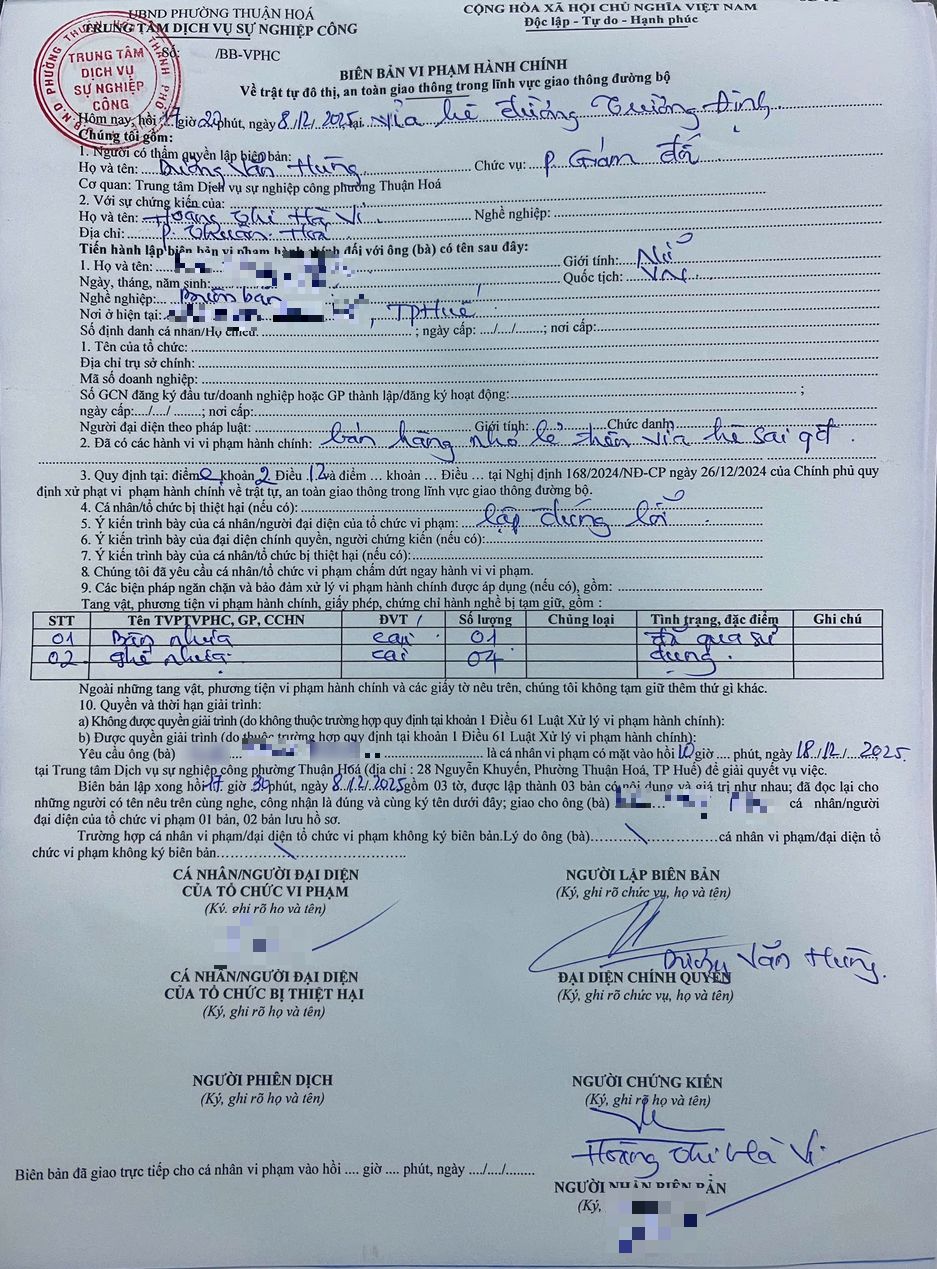 UBND PHƯỜNG THUẬN HOÁ
TRUNG TÂM DỊCH VỤ SỰ NGHIỆP CÔNG
CỘNG HÒA XÃ HỘI CHỦ NGHĨA VIỆT NAM
Độc lập - Tự do - Hạnh phúc
Số: /BB-VPHC
TRUNG TÂM
DỊCH VỤ
SỰ NGHIỆP
CÔNG
BIÊN BẢN VI PHẠM HÀNH CHÍNH
Về trật tự đô thị, an toàn giao thông trong lĩnh vực giao thông đường bộ
Hôm nay, hồi 17 giờ 22 phút, ngày 8/12/2025 tại vỉa hè đường Trương Định
Chúng tôi gồm:
1. Người có thẩm quyền lập biên bản:
Họ và tên: Dương Văn Hùng Chức vụ: P. Giám đốc
Cơ quan: Trung tâm Dịch vụ sự nghiệp công phường Thuận Hoá
2. Với sự chứng kiến của:
Họ và tên: Hoàng Thị Hà Vi Nghề nghiệp:
Địa chỉ: P. Thuận Hoá
Tiến hành lập biên bản vi phạm hành chính đối với ông (bà) có tên sau đây:
1. Họ và tên: Giới tính: Nữ
Ngày, tháng, năm sinh: Quốc tịch: VN
Nghề nghiệp: Buôn bán
Nơi ở hiện tại: , TP Huế
Số định danh cá nhân/Hộ chiếu: ; ngày cấp: .../.../.......; nơi cấp:
1. Tên của tổ chức:
Địa chỉ trụ sở chính:
Mã số doanh nghiệp:
Số GCN đăng ký đầu tư/doanh nghiệp hoặc GP thành lập/đăng ký hoạt động: ;
ngày cấp:.../.../ .......; nơi cấp:
Người đại diện theo pháp luật: Giới tính: Chức danh
2. Đã có các hành vi vi phạm hành chính: bán hàng nhỏ lẻ trên vỉa hè sai qđ.
3. Quy định tại: điểm e khoản 2 Điều 12 và điểm ... khoản ... Điều ... tại Nghị định 168/2024/NĐ-CP ngày 26/12/2024 của Chính phủ quy
định xử phạt vi phạm hành chính về trật tự, an toàn giao thông trong lĩnh vực giao thông đường bộ.
4. Cá nhân/tổ chức bị thiệt hại (nếu có):
5. Ý kiến trình bày của cá nhân/người đại diện của tổ chức vi phạm: lập đúng lỗi
6. Ý kiến trình bày của đại diện chính quyền, người chứng kiến (nếu có):
7. Ý kiến trình bày của cá nhân/tổ chức bị thiệt hại (nếu có):
8. Chúng tôi đã yêu cầu cá nhân/tổ chức vi phạm chấm dứt ngay hành vi vi phạm.
9. Các biện pháp ngăn chặn và bảo đảm xử lý vi phạm hành chính được áp dụng (nếu có), gồm:
Tang vật, phương tiện vi phạm hành chính, giấy phép, chứng chỉ hành nghề bị tạm giữ, gồm :
STT Tên TVPTVPHC, GP, CCHN ĐVT Số lượng Chủng loại Tình trạng, đặc điểm Ghi chú
01 Bàn nhựa cái 01 đã qua sử
02 Ghế nhựa cái 04 dụng.
Ngoài những tang vật, phương tiện vi phạm hành chính và các giấy tờ nêu trên, chúng tôi không tạm giữ thêm thứ gì khác.
10. Quyền và thời hạn giải trình:
a) Không được quyền giải trình (do không thuộc trường hợp quy định tại khoản 1 Điều 61 Luật Xử lý vi phạm hành chính):
b) Được quyền giải trình (do thuộc trường hợp quy định tại khoản 1 Điều 61 Luật Xử lý vi phạm hành chính):
Yêu cầu ông (bà) là cá nhân vi phạm có mặt vào hồi 10 giờ ... phút, ngày 18/12/2025
tại Trung tâm Dịch vụ sự nghiệp công phường Thuận Hoá (địa chỉ : 28 Nguyễn Khuyến, Phường Thuận Hoá, TP Huế) để giải quyết vụ việc.
Biên bản lập xong hồi 17 giờ 30 phút, ngày 8/12/2025 gồm 03 tờ, được lập thành 03 bản có nội dung và giá trị như nhau; đã đọc lại cho
những người có tên nêu trên cùng nghe, công nhận là đúng và cùng ký tên dưới đây; giao cho ông (bà) cá nhân/người
đại diện của tổ chức vi phạm 01 bản, 02 bản lưu hồ sơ.
Trường hợp cá nhân vi phạm/đại diện tổ chức vi phạm không ký biên bản.Lý do ông (bà) cá nhân vi phạm/đại diện tổ
chức vi phạm không ký biên bản
CÁ NHÂN/NGƯỜI ĐẠI DIỆN
CỦA TỔ CHỨC VI PHẠM
(Ký, ghi rõ họ và tên)
NGƯỜI LẬP BIÊN BẢN
(Ký, ghi rõ chức vụ, họ và tên)
Dương Văn Hùng.
CÁ NHÂN/NGƯỜI ĐẠI DIỆN
CỦA TỔ CHỨC BỊ THIỆT HẠI
(Ký, ghi rõ họ và tên)
ĐẠI DIỆN CHÍNH QUYỀN
(Ký, ghi rõ chức vụ, họ và tên)
NGƯỜI PHIÊN DỊCH
(Ký, ghi rõ họ và tên)
NGƯỜI CHỨNG KIẾN
(Ký, ghi rõ họ và tên)
Hoàng Thị Hà Vi
Biên bản đã giao trực tiếp cho cá nhân vi phạm vào hồi .... giờ .... phút, ngày ..../..../........
NGƯỜI NHẬN BIÊN BẢN
(Ký,